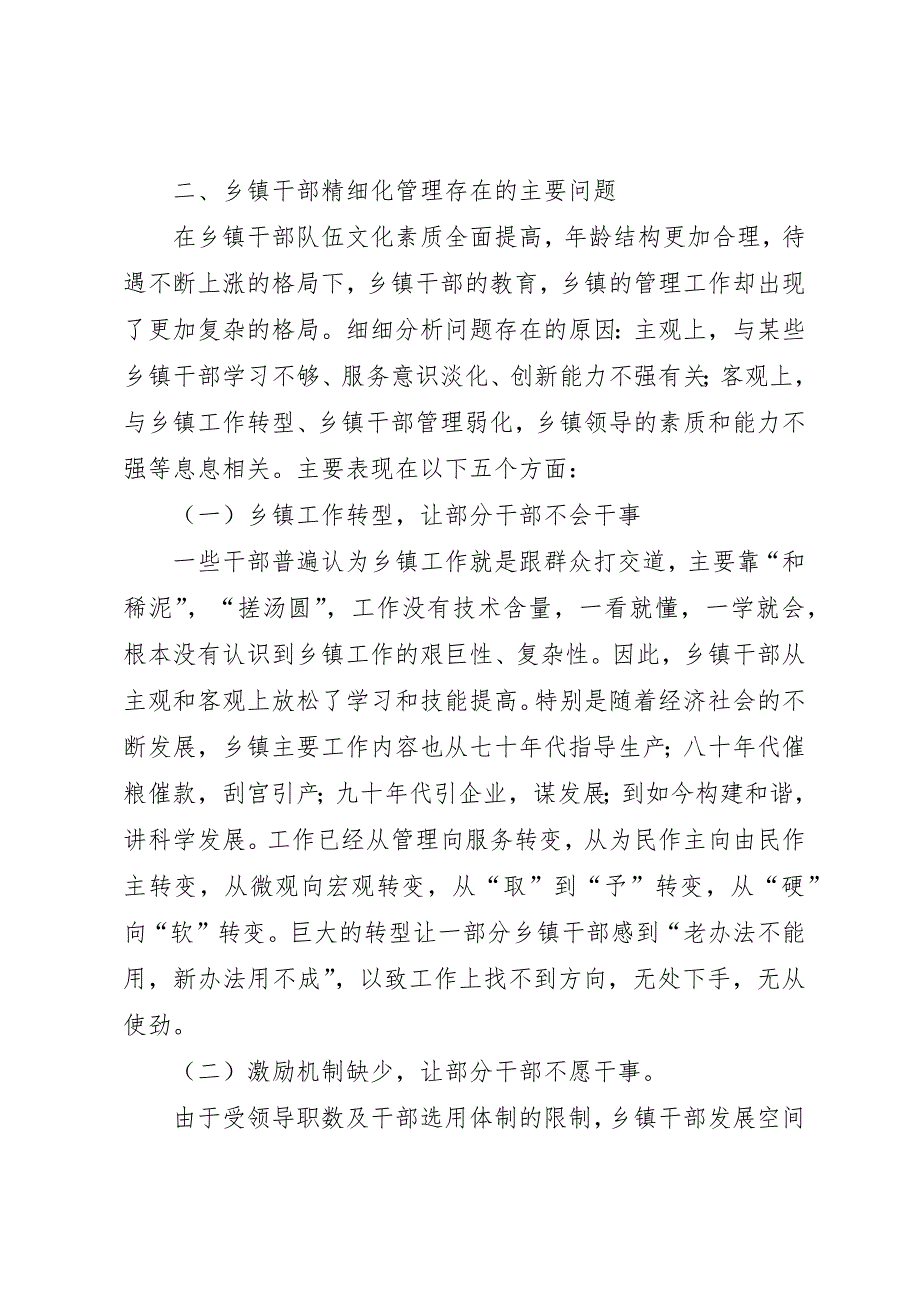 二、乡镇干部精细化管理存在的主要问题
在乡镇干部队伍文化素质全面提高，年龄结构更加合理，待
遇不断上涨的格局下，乡镇干部的教育，乡镇的管理工作却出现
了更加复杂的格局。细细分析问题存在的原因：主观上，与某些
乡镇干部学习不够、服务意识淡化、创新能力不强有关；客观上，
与乡镇工作转型、乡镇干部管理弱化，乡镇领导的素质和能力不
强等息息相关。主要表现在以下五个方面：
（一）乡镇工作转型，让部分干部不会干事
一些干部普遍认为乡镇工作就是跟群众打交道，主要靠“和
稀泥”，“搓汤圆”，工作没有技术含量，一看就懂，一学就会，
根本没有认识到乡镇工作的艰巨性、复杂性。因此，乡镇干部从
主观和客观上放松了学习和技能提高。特别是随着经济社会的不
断发展，乡镇主要工作内容也从七十年代指导生产；八十年代催
粮催款，刮宫引产；九十年代引企业，谋发展；到如今构建和谐，
讲科学发展。工作已经从管理向服务转变，从为民作主向由民作
主转变，从微观向宏观转变，从“取”到“予”转变，从“硬”
向“软”转变。巨大的转型让一部分乡镇干部感到“老办法不能
用，新办法用不成”，以致工作上找不到方向，无处下手，无从
使劲。
（二）激励机制缺少，让部分干部不愿干事。
由于受领导职数及干部选用体制的限制，乡镇干部发展空间